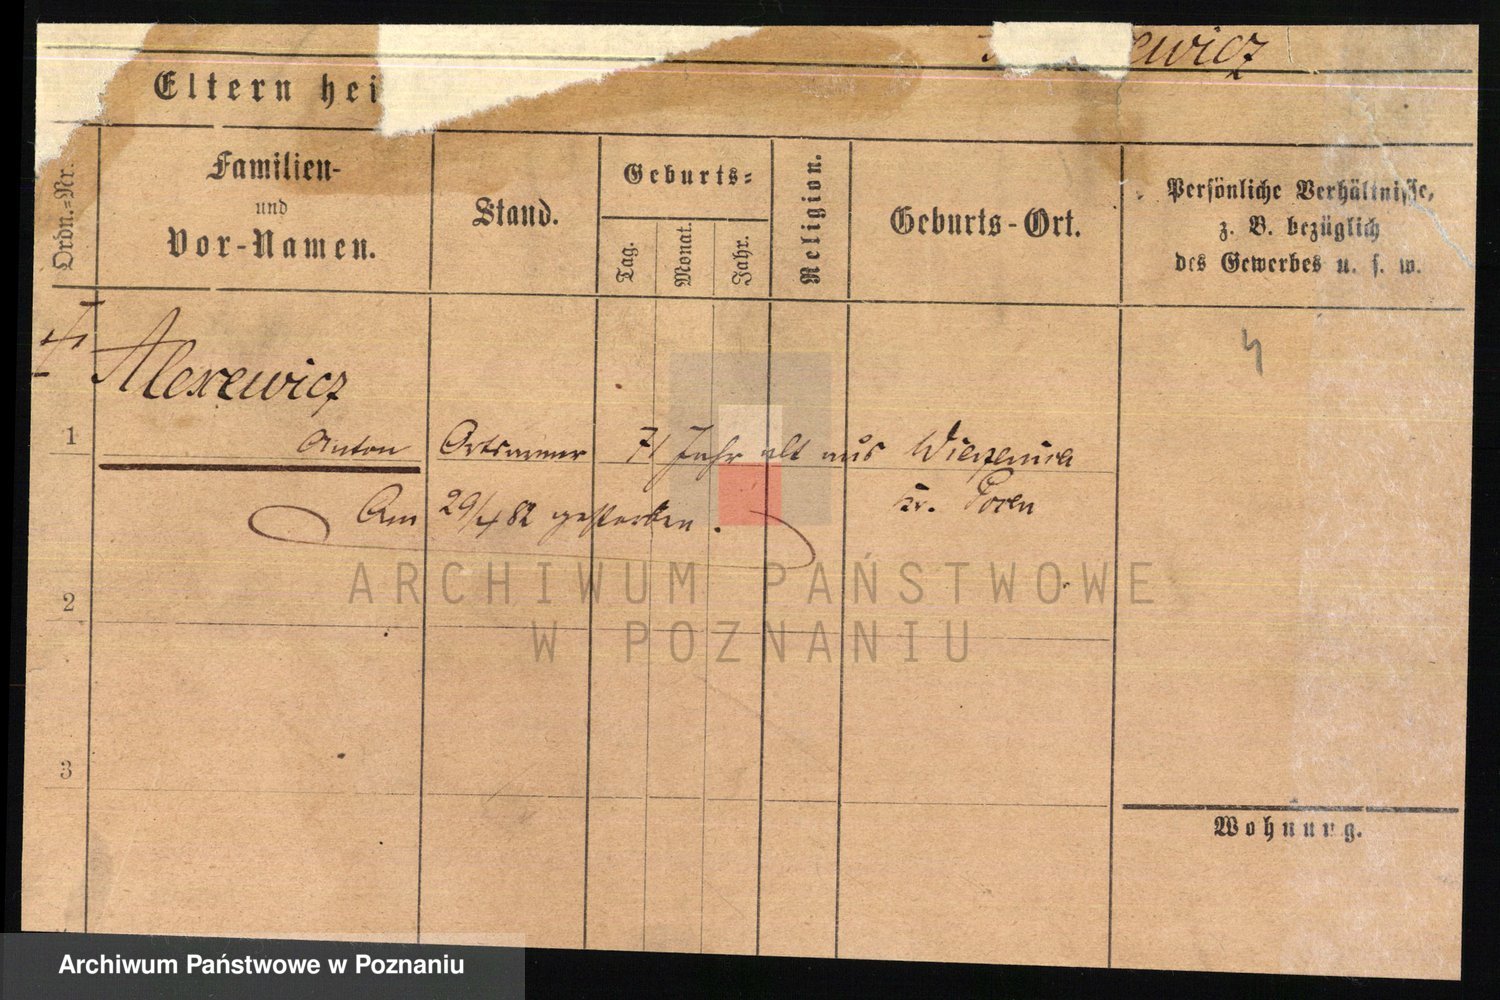 ewicz
Eltern hei
Ordn.=Nr.
Familien-
und
Vor-Namen.
Stand.
Geburts=
Tag.
Monat.
Jahr.
Religion.
Geburts-Ort.
Persönliche Verhältnisse,
z. B. bezüglich
des Gewerbes u. s. w.
4
Alexewicz
1 Anton Ortsarmer 71 Jahr alt aus Wierzenica
Kr. Posen
Am 29/4 82 gestorben.
2
3
Wohnung.
ARCHIWUM PAŃSTWOWE
W POZNANIU
Archiwum Państwowe w Poznaniu